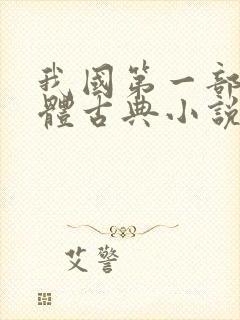 我國第一部
體古典小説
艾警